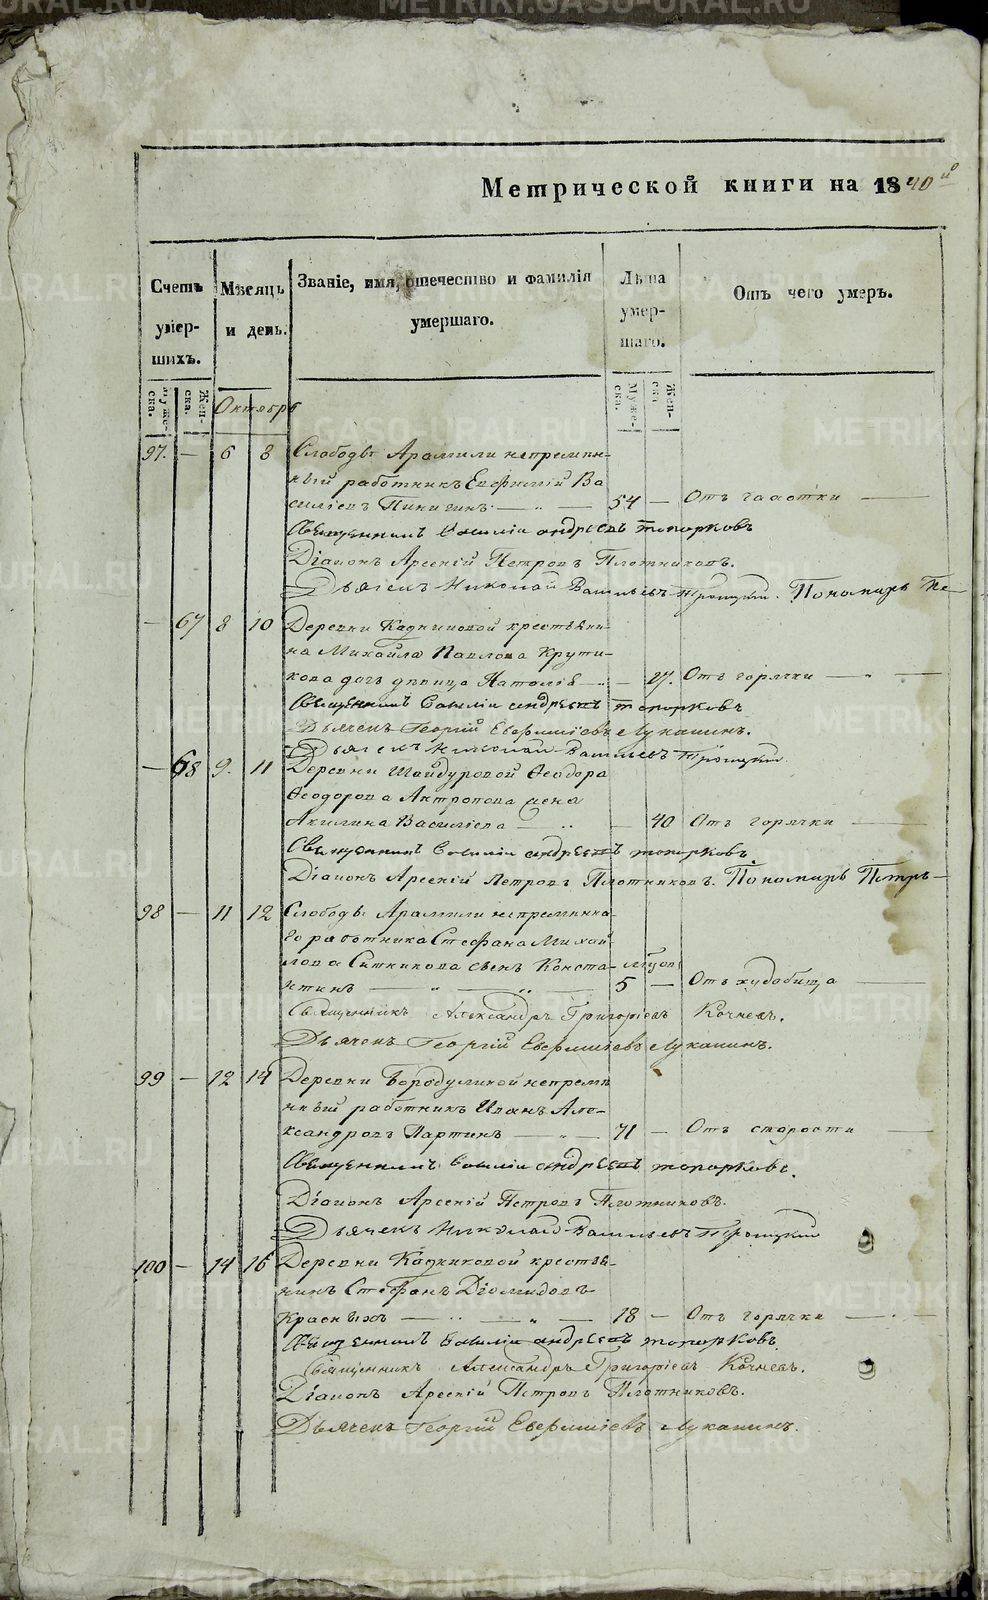 METRIKI.GASO-URAL.RU
Метрической книги на 1840й
Счетъ умер-шихъ.
Мѣсяцъ и день.
Званіе, имя, отечество и фамилія умершаго.
Лѣта умер-шаго.
Отъ чего умеръ.
Муже-ска. Жен-ска. Муже-ска. Жен-ска.
Октябрь
97. — 6 8 Слободы Арамили непремѣн-
ный работникъ Евфимій Ва
силіевъ Пинигинъ — 54 — Отъ
Священникъ Василій Андреевъ Топорковъ
Діаконъ Арсеній Петровъ Плотниковъ.
Дьячекъ Николай Васильевъ Троицкій. Пономарь Пе—
— 67 8 10 Деревни Кадниковой крестьяни-
на Михайла Павлова Крути-
кова дочь дѣвица Наталія — 27. Отъ горячки —
Священникъ Василій Андреевъ Топорковъ
Дьячекъ Георгій Евфиміевъ Луканинъ.
Дьячекъ Николай Васильевъ Троицкій
— 68 9. 11 Деревни Шайдуровой Ѳеодора
Ѳеодорова Антропова жена
Акилина Василіева — — 40 Отъ горячки —
Священникъ Василій Андреевъ Топорковъ.
Діаконъ Арсеній Петровъ Плотниковъ. Пономарь Петръ—
98 — 11 12 Слободы Арамили непремѣнна-
го работника Стефана Михай-
лова Ситникова сынъ Конста-
нтинъ — 5 — Отъ худобища —
Священникъ Александръ Григоріевъ Кочневъ.
Дьячекъ Георгій Евфиміевъ Луканинъ.
99 — 12 14 Деревни Бородулиной непремѣ
нный работникъ Иванъ Але-
ксандровъ Партинъ — 71 — Отъ старости —
Священникъ Василій Андреевъ Топорковъ.
Діаконъ Арсеній Петровъ Плотниковъ.
Дьячекъ Николай Васильевъ Троицкій
100 — 14 16 Деревни Кадниковой крестья-
нинъ Стефанъ Діомидовъ
Красныхъ — 18 — Отъ горячки —
Священникъ Василій Андреевъ Топорковъ.
Священникъ Александръ Григоріевъ Кочневъ.
Діаконъ Арсеній Петровъ Плотниковъ.
Дьячекъ Георгій Евфиміевъ Луканинъ.